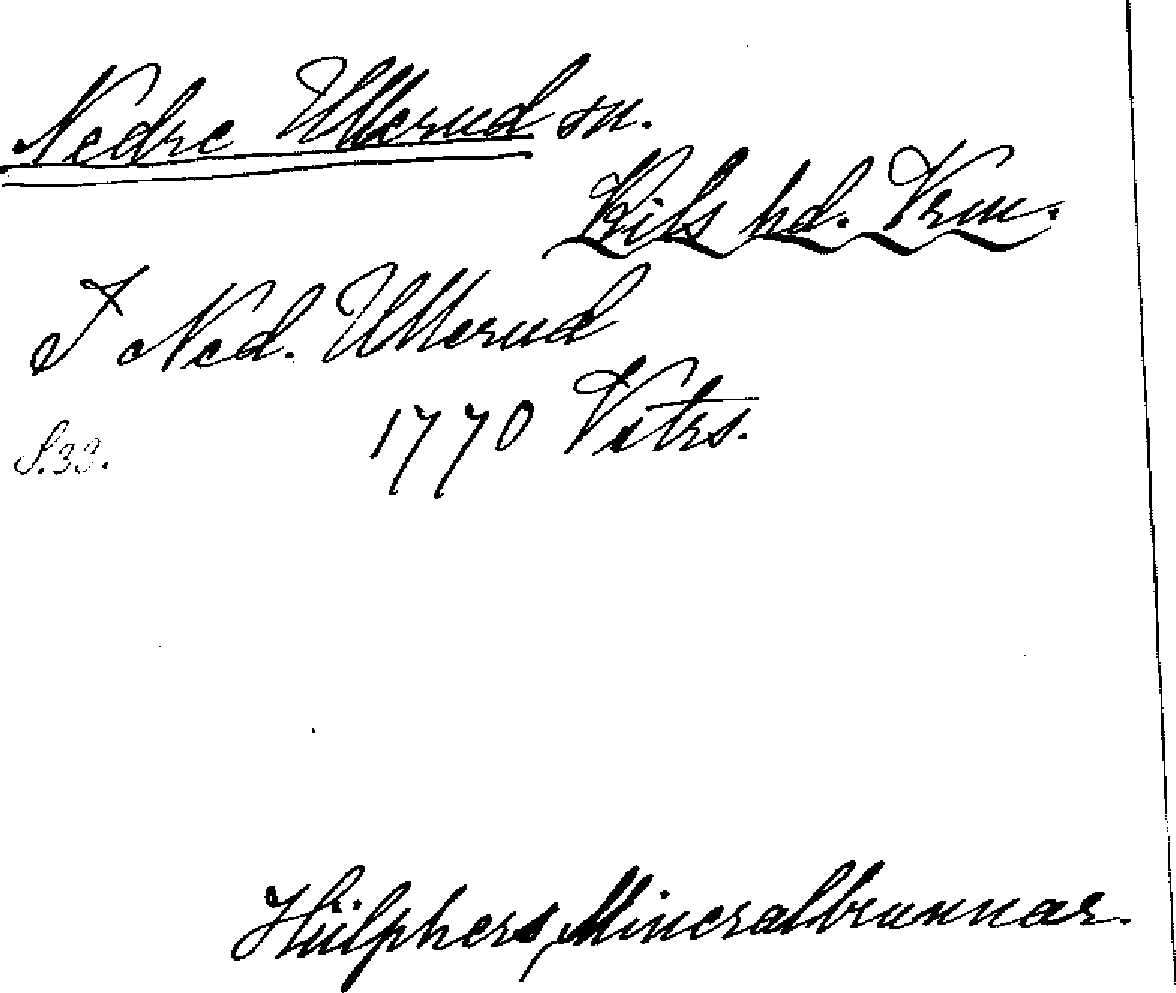 Nedre Ullerud sn.
Kils hd. Vrm.
I Ned. Ullerud
1770 Vitrs.
S. 33.
Hülphers, Mineralbrunnar.